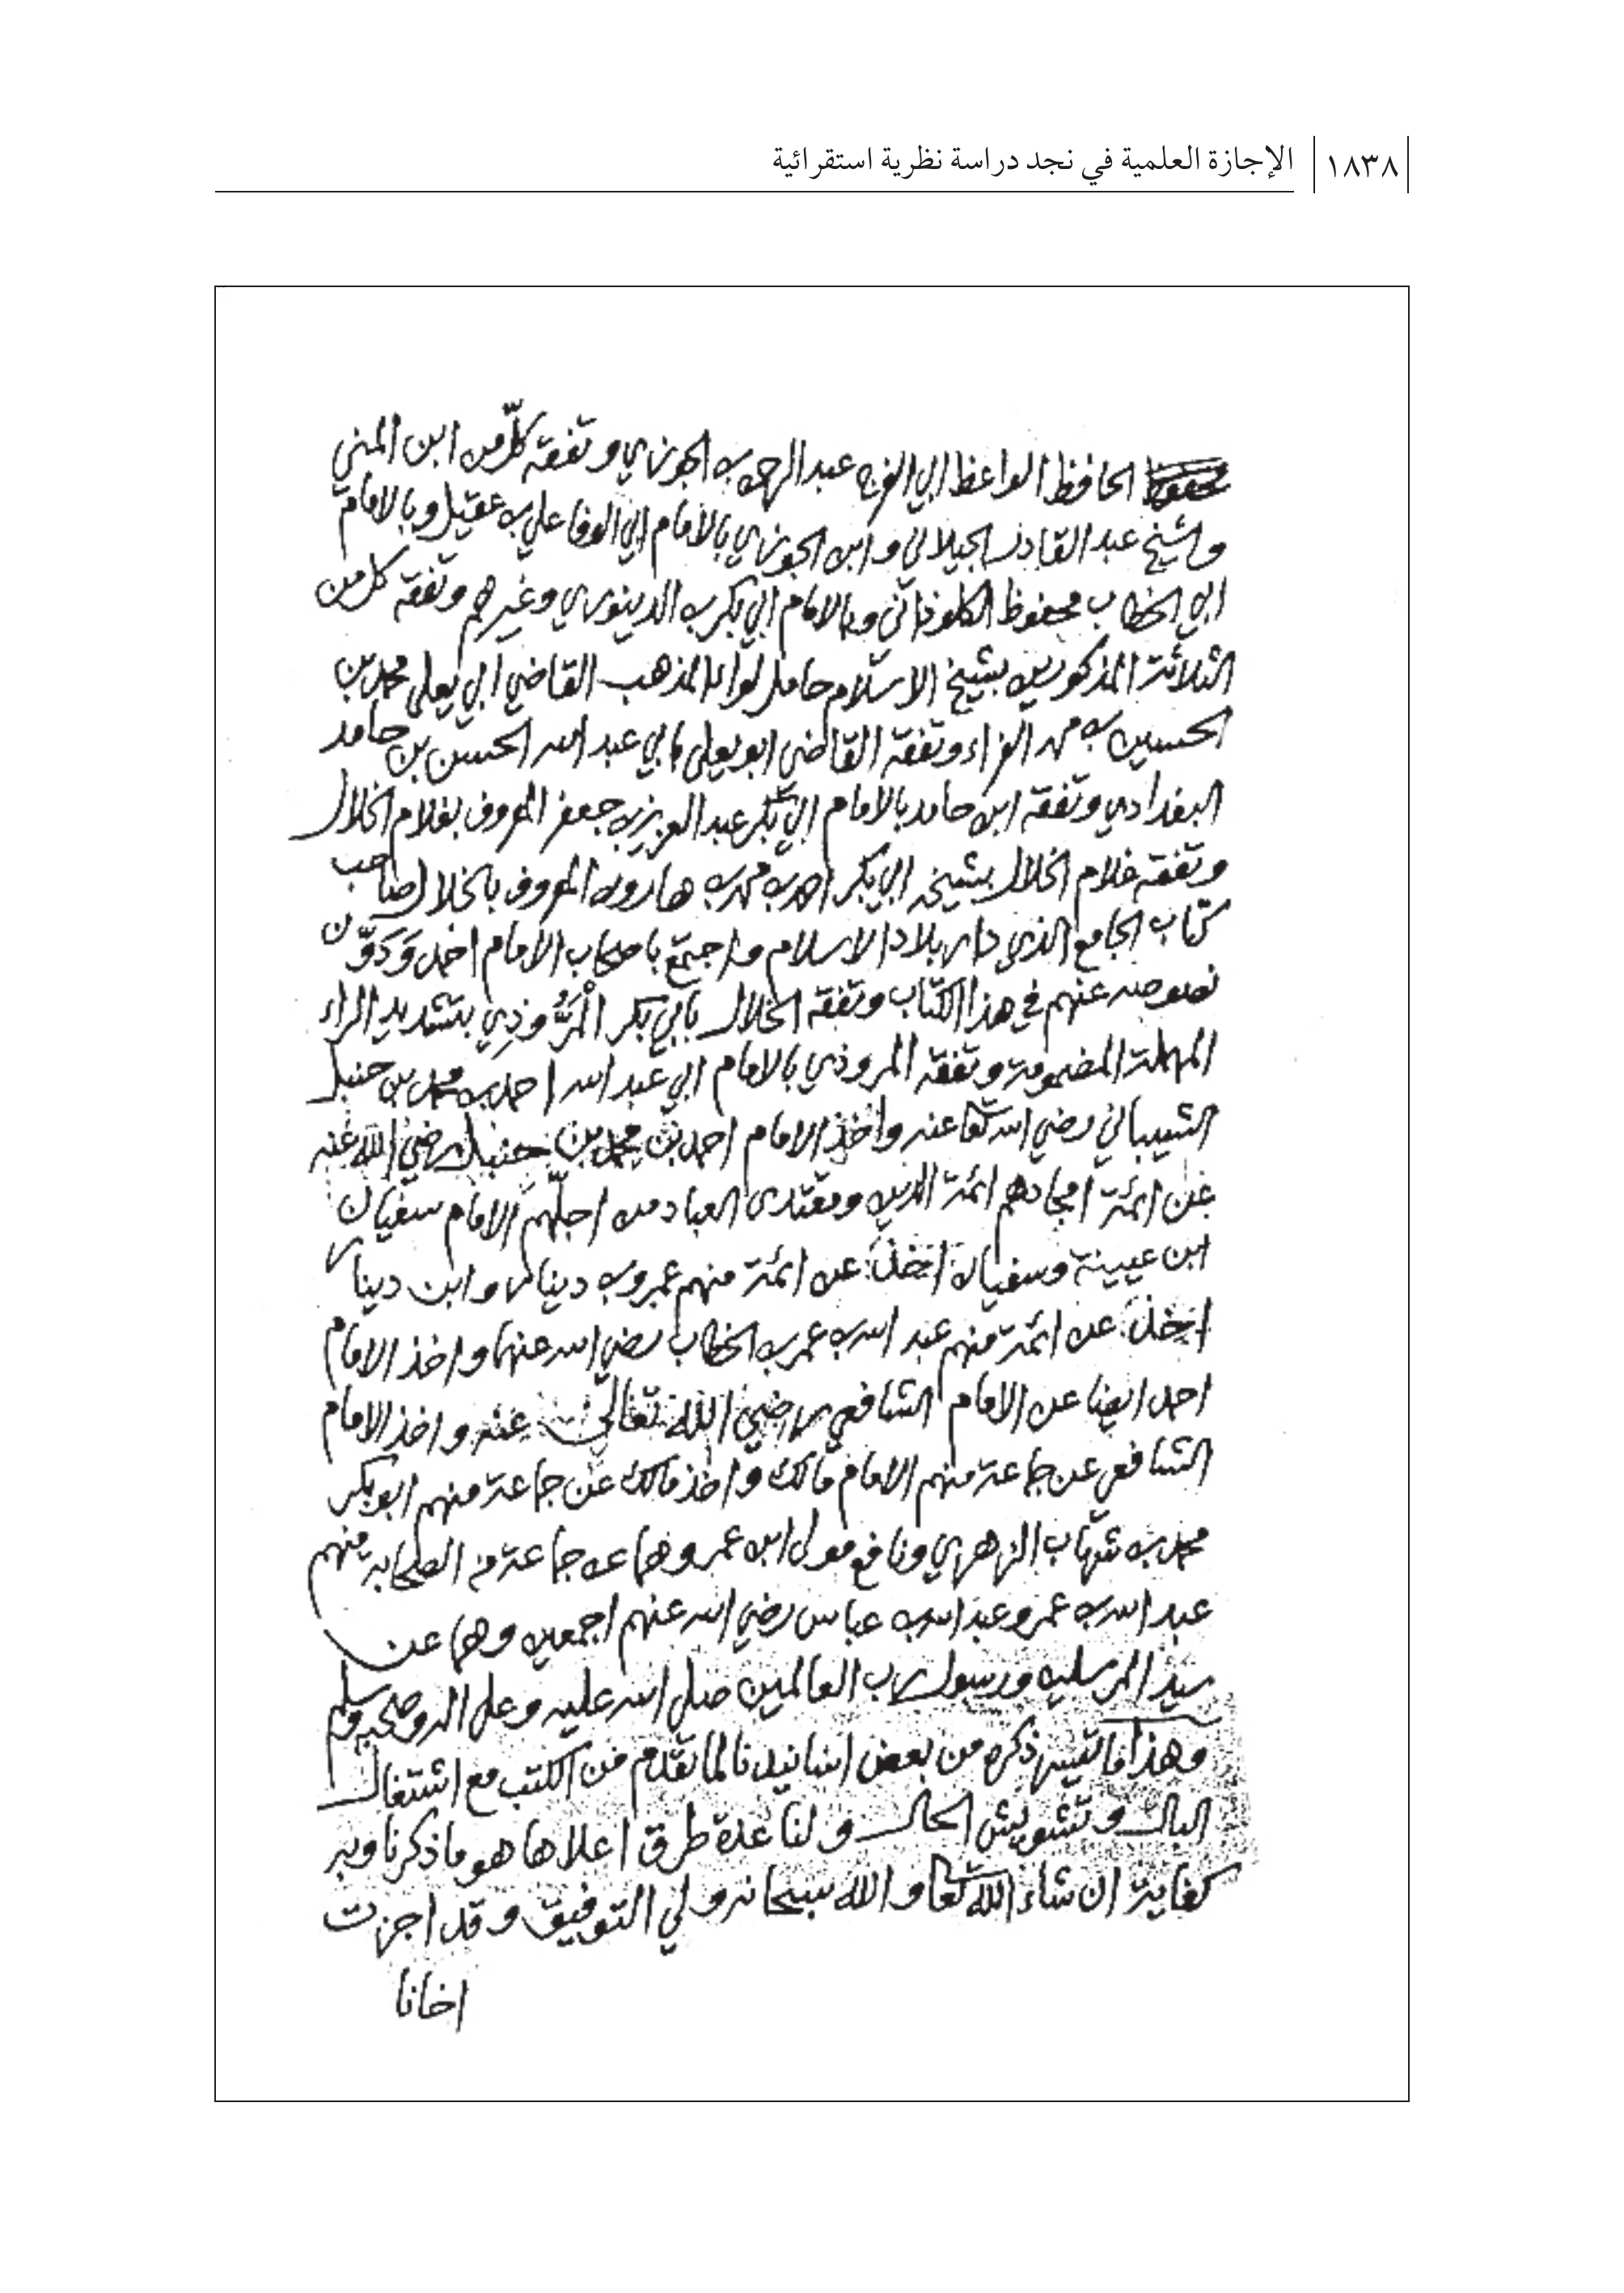 ١٨٣٨ الإجازة العلمية في نجد دراسة نظرية استقرائية
الحافظ الواعظ ابي الفرج عبد الرحمن بن الجوزي وتفقه كلّ من ابن المني
والشيخ عبد القادر الجيلاني وابن الجوزي بالامام ابي الوفا علي بن عقيل وبالامام
ابي الخطاب محفوظ الكلوذاني وبالامام ابي بكر بن الدينوري وغيرهم وتفقه كل من
الثلاثة المذكورين بشيخ الاسلام حامل لواء المذهب القاضي ابي يعلى محمد بن
الحسين بن محمد الفراء وتفقه القاضي ابو يعلى بابي عبد الله الحسن بن حامد
البغدادي وتفقه ابن حامد بالامام ابي بكر عبد العزيز بن جعفر المعروف بغلام الخلال
وتفقه غلام الخلال بشيخه ابي بكر احمد بن محمد بن هارون المعروف بالخلال صاحب
كتاب الجامع الذي دار بلاد الاسلام واجتمع باصحاب الامام احمد وَدَوَّن
نصوصه عنهم في هذا الكتاب وتفقه الخلال بابي بكر الْمَرُّوذِي بتشديد الراء
المهملة المضمومة وتفقه المروذي بالامام ابي عبد الله احمد بن محمد بن حنبل
الشيباني رضي الله تعا عنه واخذ الامام احمد بن محمد بن حنبل رضي الله عنه
عن ائمة امجادهم ائمة الدين ومقتدى العباد من اجلّهم الامام سفيان
ابن عيينة وسفيان اخذ عن ائمة منهم عمرو بن دينار وابن دينار
اخذ عن ائمة منهم عبد الله بن عمر بن الخطاب رضي الله عنهما واخذ الامام
احمد ايضا عن الامام الشافعي رضي الله تعالى عنه واخذ الامام
الشافعي عن جماعة منهم الامام مالك واخذ مالك عن جماعة منهم ابو بكر
محمد بن شهاب الزهري ونافع مولى ابن عمر وهما عن جماعة من الصحابه منهم
عبد الله بن عمر وعبد الله بن عباس رضي الله عنهم اجمعين وهما عن
سيد المرسلين ورسول رب العالمين صلى الله عليه وعلى اله وصحبه وسلم
وهذا ما تيسر ذكره من بعض اسانيدنا لما تقدم من الكتب مع اشتغال
البال وتشويش الحال ولنا عدة طرق اعلاها هو ما ذكرنا وبه
كفاية ان شاء الله تعا والله سبحانه ولي التوفيق وقد اجزت
اخانا